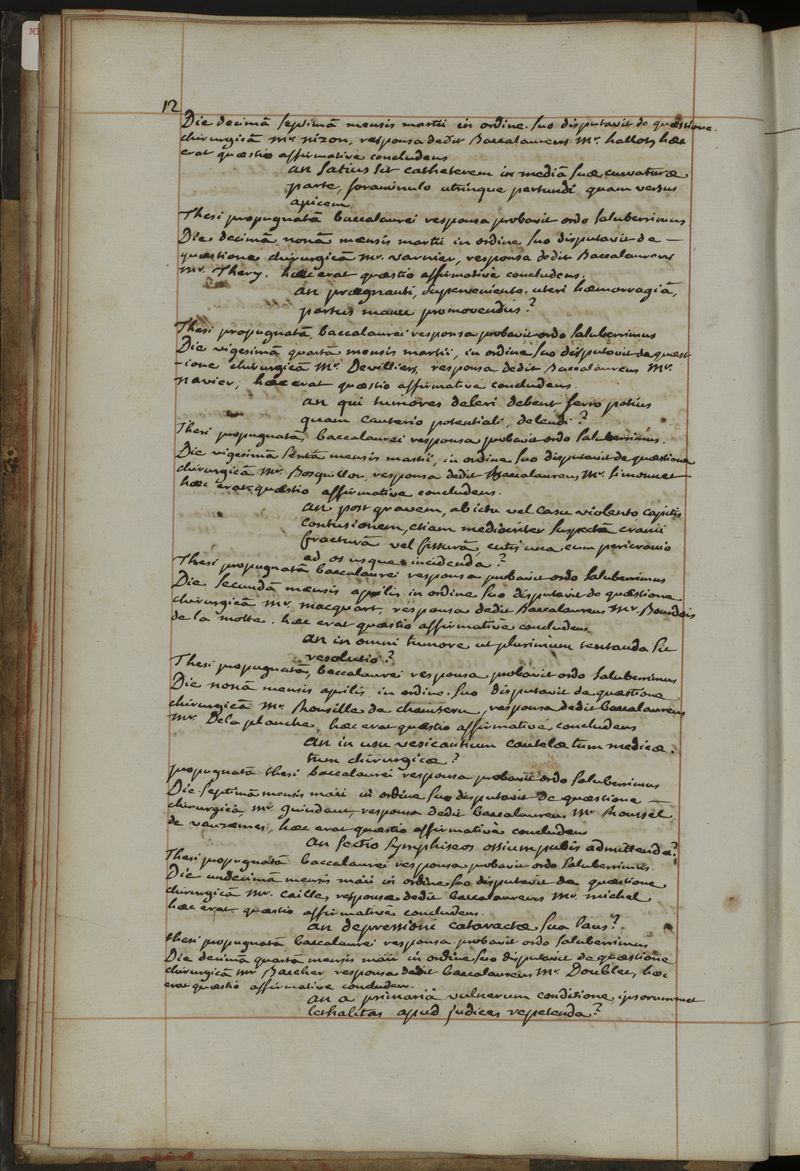 12
Die decimâ septimâ mensis martii in ordine suo disputavit de quæstione
chirurgicâ Mr. nizon, responsa dedit Baccalaureus Mr. hallot, hæc
erat quæstio affirmative concludens
an satius sit catheterem in mediâ suæ curvaturæ
parte, foraminulo utrinque pertundi quam versus
apicem
Thesi propugnatâ baccalaurei responsa probavit ordo saluberrimus
Die decimâ nonâ mensis martii in ordine suo disputavit de —
quæstione chirurgicâ Mr. varnier, responsa dedit Baccalaureus
Mr. Thery. hæc erat quæstio affirmative concludens.
an prægnanti, superveniente uteri hæmorragiâ,
partus manu promovendus?
Thesi propugnatâ, baccalaurei responsa probavit ordo saluberrimus
Die vigesimâ quartâ mensis martii, in ordine suo disputavit de quæst
-ione chirurgicâ Mr. Devilliers, responsa dedit Baccalaureus Mr.
navier, hæc erat quæstio affirmative concludens.
an qui tumores deleri debent ferro potius
quam cauterio potentiali, delendi?
Thesi propugnatâ, baccalaurei responsa probavit ordo saluberrimus.
Die vigesimâ sextâ mensis martii, in ordine suo disputavit de quæstione
chirurgicâ Mr. Bosquillon, responsa dedit Baccalaureus Mr. Simonnet
hæc erat quæstio affirmative concludens.
an post gravem, ab ictu vel casu violento capitis
contusionem, etiam mediocriter suspectâ cranii
fracturâ vel fissurâ, cutis una cum pericranio
ad os usque incidenda?
Thesi propugnatâ baccalaurei responsa probavit ordo saluberrimus
Die secundâ mensis aprilis in ordine suo disputavit de quæstione
chirurgicâ Mr. macquart, responsa dedit Baccalaureus Mr. Bourdois
de la motte. hæc erat quæstio affirmative concludens
an in omni tumore ut plurimum tentanda sit
resolutio?
Thesi propugnatâ, baccalaurei responsa probavit ordo saluberrimus
Die nonâ mensis aprilis, in ordine suo disputavit de quæstione
chirurgicâ Mr. Roussille de chamseru, responsa dedit baccalaureus
Mr. Dela planche, hæc erat quæstio affirmative concludens
an in usu vesicantium cautelæ tum medicæ,
tum chirurgicæ?
propugnatâ thesi baccalaurei responsa probavit ordo saluberrimus
Die septimâ mensis maii in ordine suo disputavit de quæstione —
chirurgicâ, Mr. Guindant, responsa dedit baccalaureus Mr. Roussel
de vauzemes, hæc erat quæstio affirmative concludens
an sectio symphiseos ossium pubis admittenda?
Thesi propugnatâ baccalaurei responsa probavit ordo saluberrimus.
Die undecimâ mensis maii in ordine suo disputavit de quæstione
chirurgicâ Mr. caille, responsa dedit baccalaureus Mr. michel
hæc erat quæstio affirmative concludens.
an depressioni cataractæ sua laus?
thesi propugnatâ baccalaurei responsa probavit ordo saluberrimus
Die decimâ quartâ mensis maii in ordine suo disputavit de quæstione
chirurgicâ Mr Bacher responsa dedit baccalaureus Mr. Doublet, hæc
erat quæstio affirmative concludens.
an a primariâ vulnerum conditione ipsorummet
lethalitas apud judices repetenda?